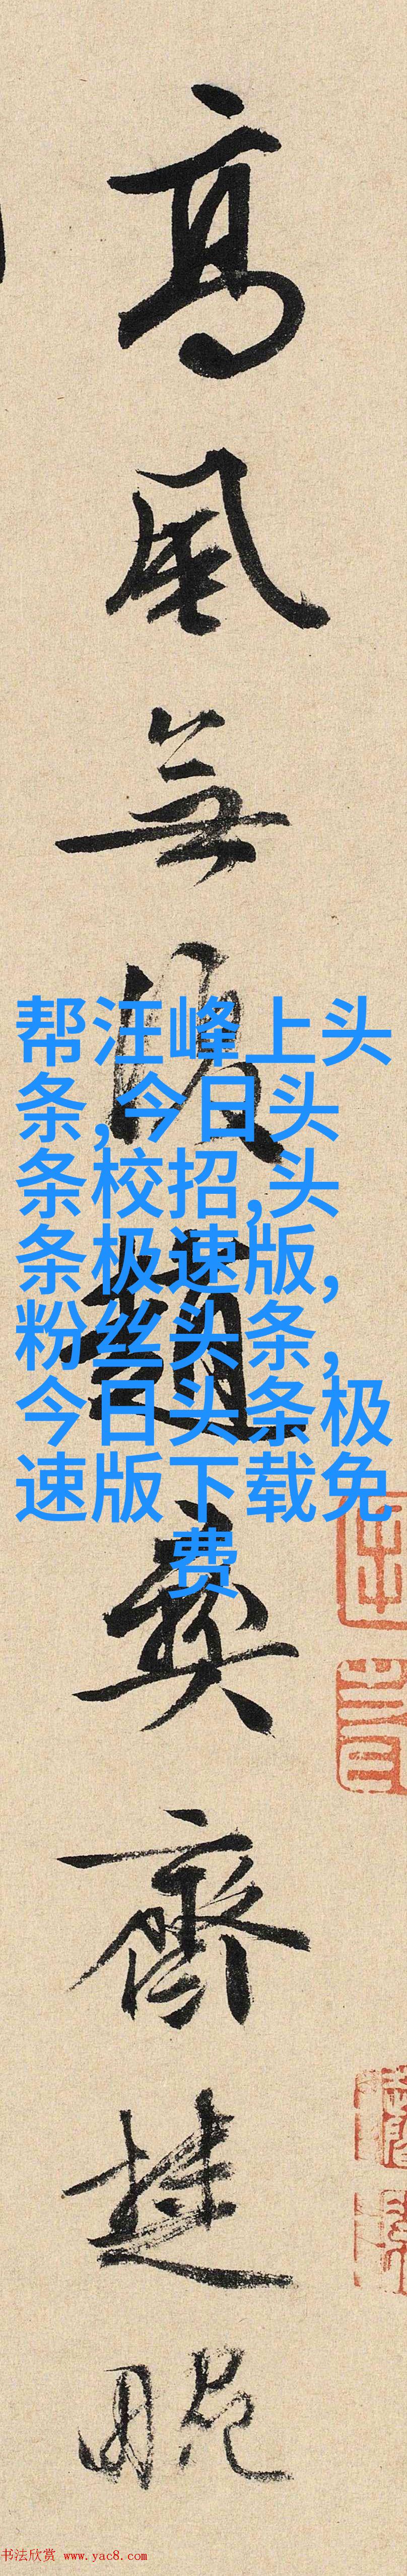 高風無復趙彝齋
帮汪峰上头
条,今日头
条校招,头
条极速版,
粉丝头条,
今日头条极
速版下载免
费
书法欣赏 www.yac8.com